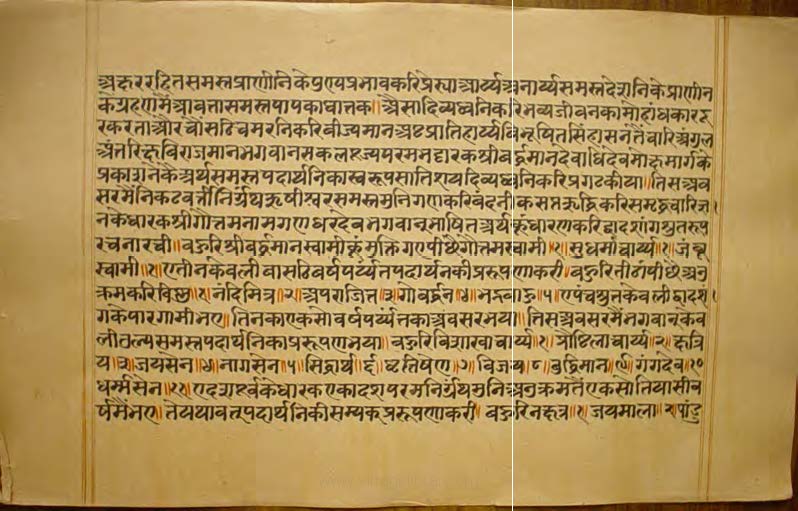 अक्षररहितसमस्तप्राणीनिके पुण्यप्रभावकरि प्रेस्या आर्य्यअनार्य्यसमस्तदेशनिके प्राणीन
के ग्रहणमैं आवता समस्तपापका घातक॥ ऐसा दिव्यध्वनिकरि भव्यजीवनका मोहांधकार दू
र करता और चौंसठि चमरनिकरि वीज्यमान अष्टप्रातिहार्य्यविभूषित सिंहासनतैं च्यारि अंगुल
अंतरिक्ष विराजमान भगवान सकलपूज्य परमभट्टारक श्रीवर्द्धमानदेवाधिदेव मोक्षमार्गके
प्रकाशनके अर्थ समस्तपदार्थनिका स्वरूप सातिशय दिव्यध्वनिकरि प्रगट कीया॥ तिस अव
सरमैं निकटवर्त्ती निर्ग्रंथ ऋषीश्वर समस्तमुनिगणकरि वंदनीक सप्तऋद्धिकरि समृद्ध च्यारि ज्ञा
नके धारक श्रीगोत्तमनामगणधरदेव भगवान्भाषित अर्थकूं धारणकरि द्वादशांगश्रुतरूप
रचना रची॥ बहुरि श्रीवर्द्धमानस्वामीकूं मुक्ति गए पीछै गोत्तमस्वामी॥१॥ सुधर्माचार्य्य॥२॥ जंबू
स्वामी॥३॥ ए तीन केवली बासठि वर्षपर्य्यंत पदार्थनकी प्ररूपणा करी॥ बहुरि तीठांपीछै अनु
क्रमकरि विष्णु॥१॥ नंदिमित्र॥२॥ अपराजित॥३॥ गोवर्द्धन॥४॥ भद्रबाहु॥५॥ ए पंच श्रुतकेवली द्वादशां
गके पारगामी भए॥ तिनका एकसो वर्षपर्य्यंतका अवसर भया॥ तिस अवसरमैं भगवान् केव
लीतुल्य समस्तपदार्थनिका प्ररूपण भया॥ बहुरि विशाखाचार्य्य॥१॥ प्रौष्ठिलाचार्य्य॥२॥ क्षत्रि
य॥३॥ जयसेन॥४॥ नागसेन॥५॥ सिद्धार्थ॥६॥ धृतिषेण॥७॥ विजय॥८॥ बुद्धिमान॥९॥ गंगदेव॥१०॥
धर्म्मसेन॥११॥ ए दशपूर्वके धारक एकादश परमनिर्ग्रंथ मुनि अनुक्रमतैं एकसो तियासी व
र्षमैं भए॥ ते यथावत्पदार्थनिकी सम्यक् प्ररूपणा करी॥ बहुरि नक्षत्र॥१॥ जयमाला॥२॥ पांडु